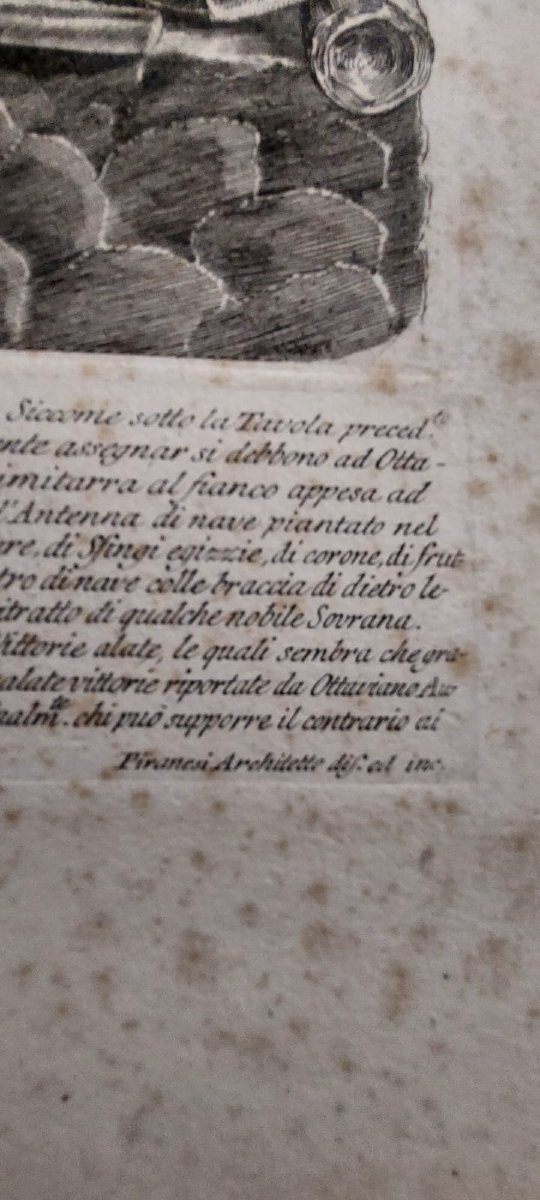 Siccome sotto la Tavola preced.te
nte assegnar si debbono ad Otta-
imitarra al fianco appesa ad
l'Antenna di nave piantato nel
are, di Sfingi egizzie, di corone, di frut-
tro di nave colle braccia di dietro le-
itratto di qualche nobile Sovrana.
Vittorie alate, le quali sembra che gra-
alate vittorie riportate da Ottaviano Au
nalm.te chi può supporre il contrario ai
Piranesi Architetto dis. ed inc.